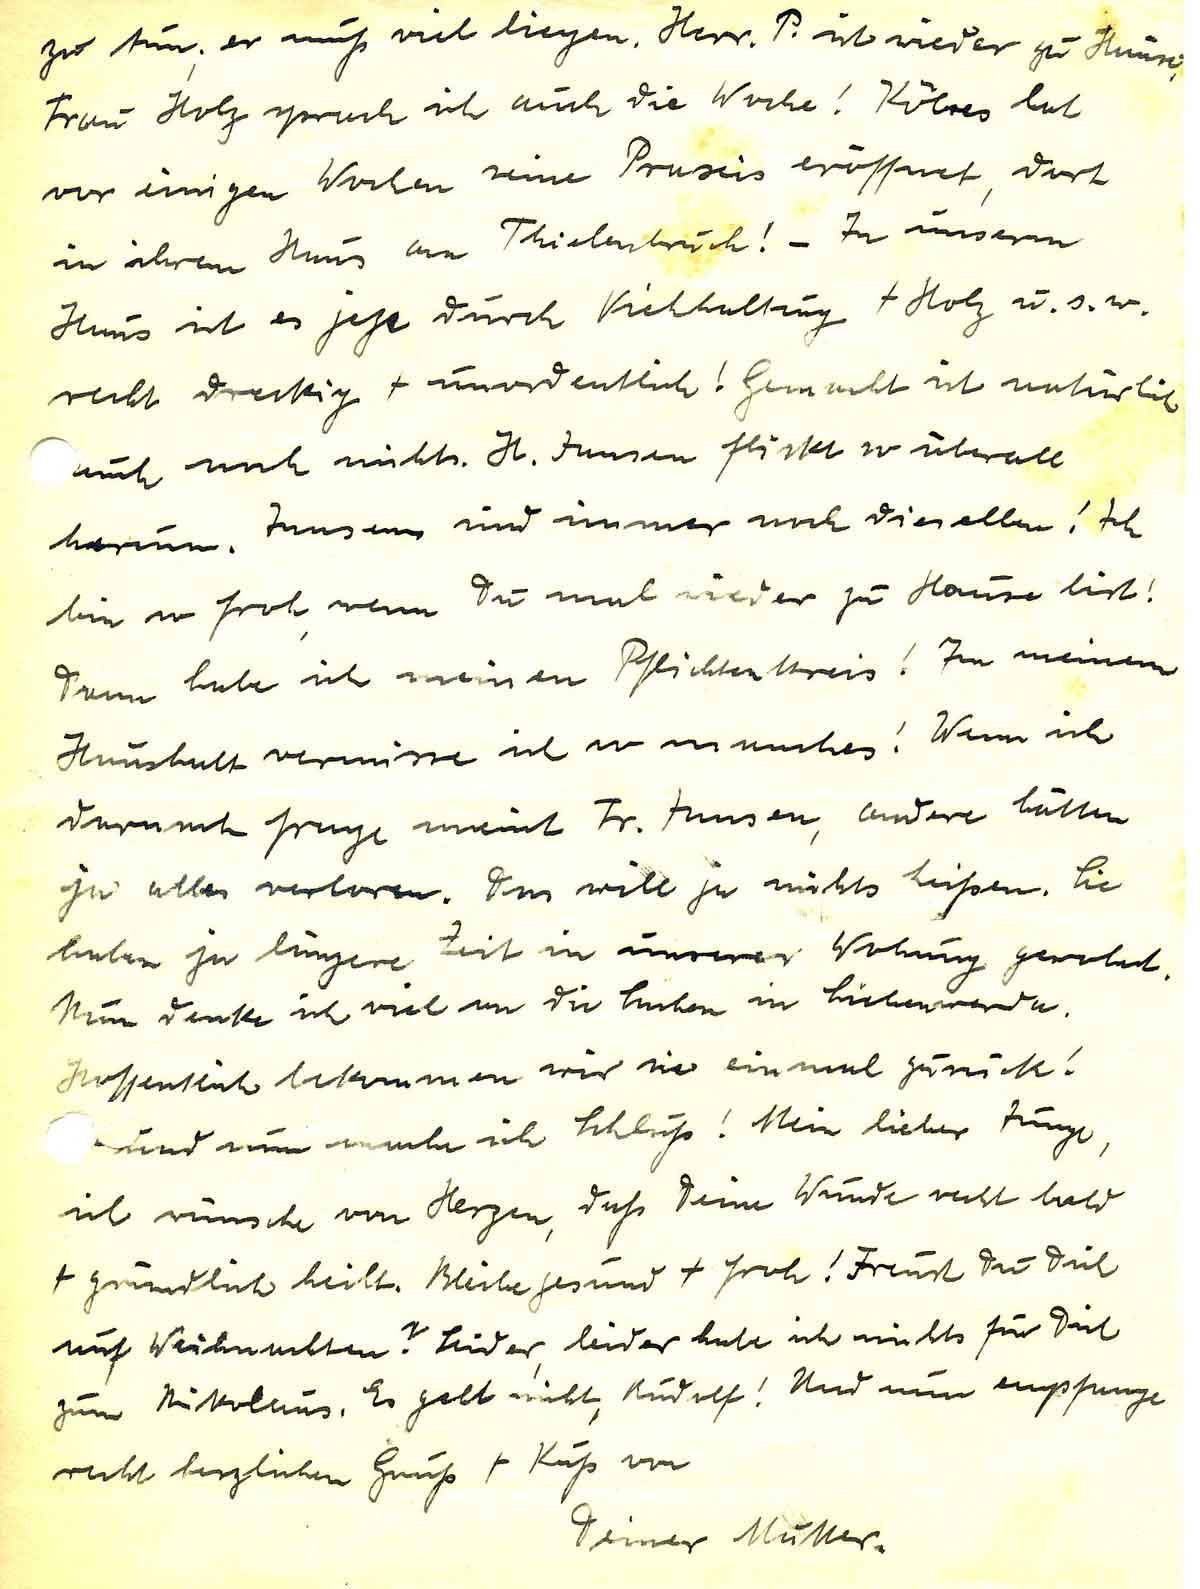 zu tun, er muß viel liegen. Herr. P. ist wieder zu Hause,
Frau Holz sprach ich auch die Woche! Kölres hat
vor einigen Wochen seine Praxis eröffnet, dort
in ihrem Haus am Thielenbruch! – In unserm
Haus ist es jetzt durch Viehhaltung + Holz u.s.w.
recht dreckig + unordentlich! Gemacht ist natürlich
auch noch nichts. H. Jansen flickt so überall
herum. Jansens sind immer noch dieselben! Ich
bin so froh, wenn Du mal wieder zu Hause bist!
Dann habe ich meinen Pflichtenkreis! In meinem
Haushalt vermisse ich so manches! Wenn ich
darnach frage meint Fr. Jansen, andere hätten
ja alles verloren. Das will ja nichts heißen. Sie
haben ja längere Zeit in unserer Wohnung gewohnt.
Nun denke ich viel an die Sachen in Liebenwerda.
Hoffentlich bekommen wir sie einmal zurück!
und nun mache ich Schluß! Mein lieber Junge,
ich wünsche von Herzen, daß Deine Wunde recht bald
+ gründlich heilt. Bleibe gesund + froh! Freust Du Dich
auf Weihnachten? Leider, leider habe ich nichts für Dich
zum Nikolaus. Es geht nicht, Rudolf! Und nun empfange
recht herzlichen Gruß + Kuß von
Deiner Mutter.